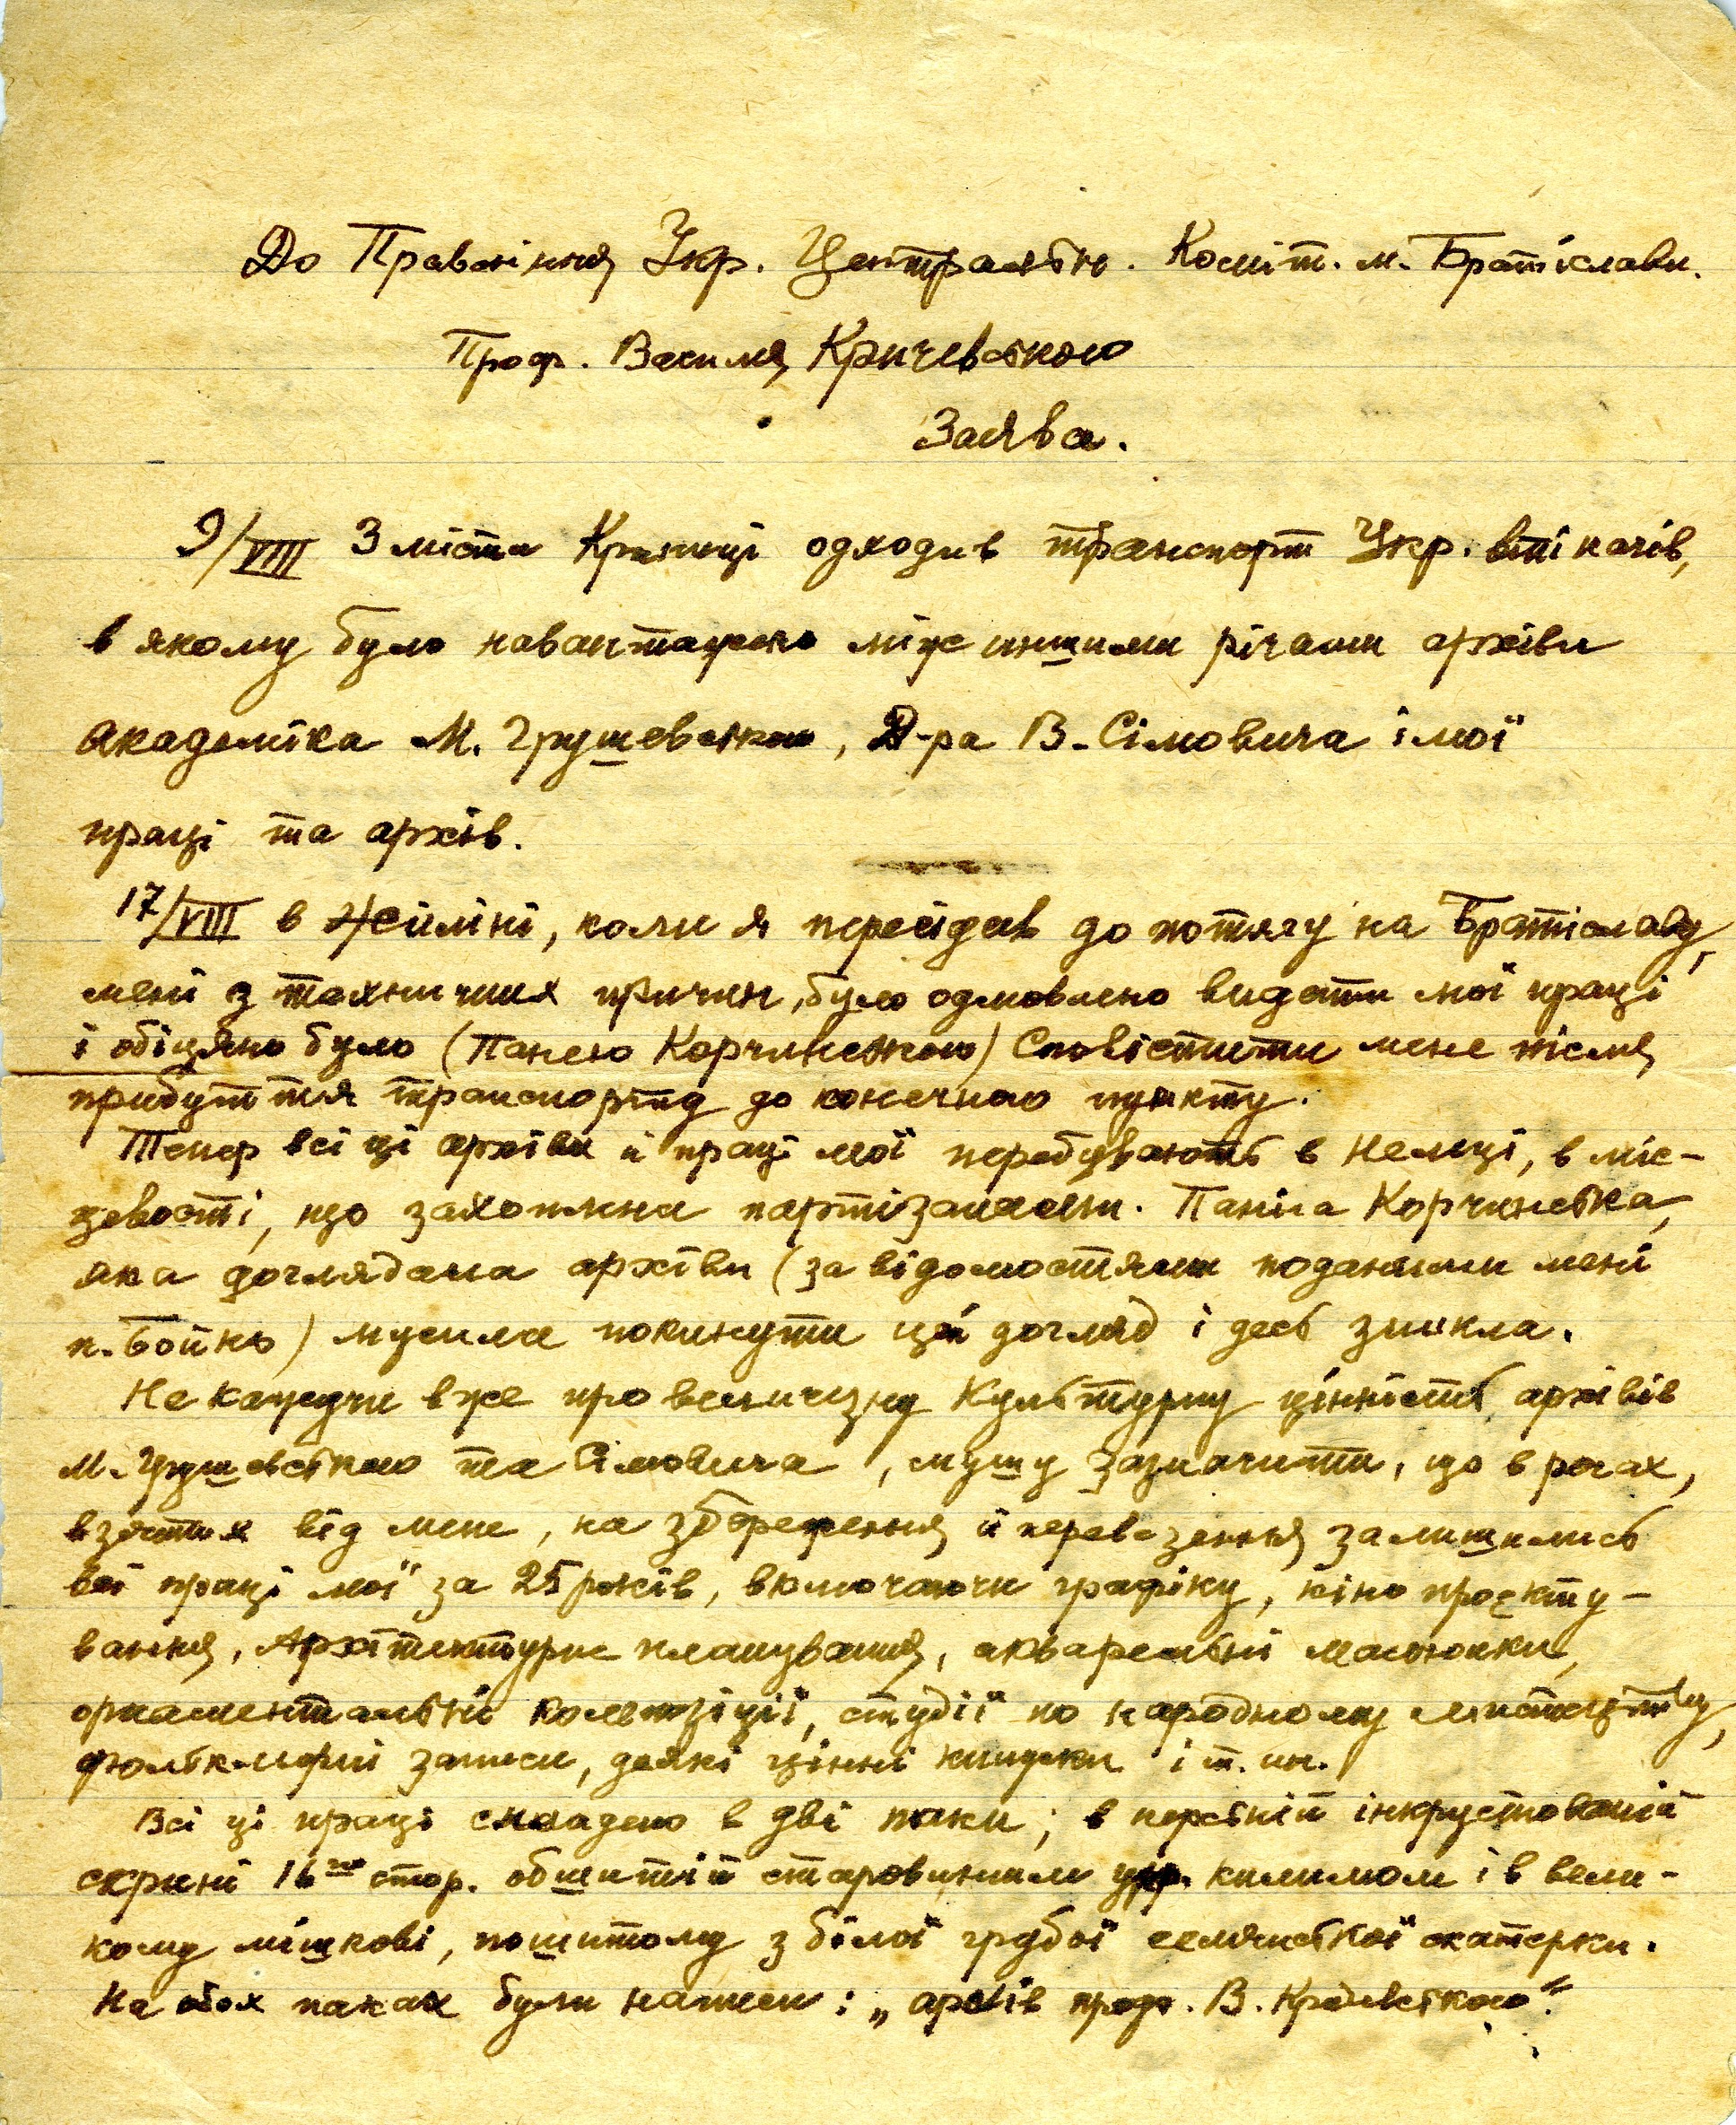 До Правління Укр. Центральн. Коміт. м. Братіслави.
Проф. Василя Кричевського
Заява.
9/VIII З міста Криниці одходив транспорт Укр. втікачів,
в якому було навантажено між иншими річами архіви
академіка М. Грушевського, Д-ра В. Сімовича і мої
праці та архів.
17/VIII в Жиліні, коли я пересідав до потягу на Братіславу,
мені з технічних причин, було одмовлено видати мої праці
і обіцяно було (Панею Корчинською) Сповістити мене після
прибуття транспорту до конечного пункту.
Тепер всі ці архіви й праці мої перебувають в Немці, в міс-
цевості, що захоплена партізанами. Паніа Корчинська,
яка доглядала архіви (за відомостями поданими мені
п. Бойко) мусила покинути цей догляд і десь зникла.
Не кажучи вже про величезну Культурну цінність архівів
М. Грушевського та Сімовича, мушу зазначити, що в речах,
взятих від мене, на збереження й перевезення залишились
всі праці мої за 25 років, включаючи графіку, кіно проєкту-
вання, Архітектурне планування, акварельні малюнки,
орнаментальні композіції, студії по народному мистецтву,
фольклорні записи, деякі цінні книжки і т. ин.
Всі ці праці складено в дві паки; в перській інкрустованій
скрині 16го стор. обшитій старовинним укр. килимом і в вели-
кому мішкові, пошитому з білої грубої селянської скатерки.
На обох паках були написи: „архів проф. В. Кричевського".